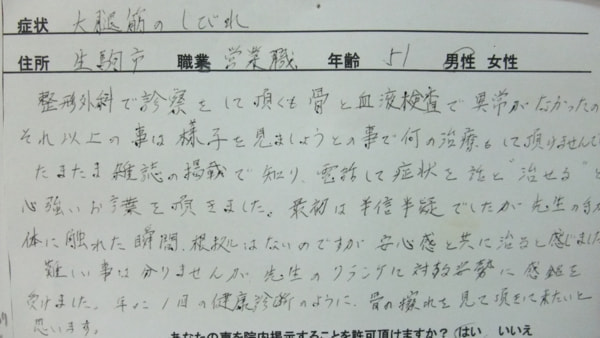 症状 大腿筋のしびれ
住所 生駒市 職業 営業職 年齢 51 男性 女性
整形外科で診察をして頂くも骨と血液検査で異常がなかったの
それ以上の事は様子を見ましょうとの事で何の治療もして頂けませんで
たまたま雑誌の掲載で知り、電話して症状を話と"治せる"と
心強いお言葉を頂きました。最初は半信半疑でしたが先生の手が
体に触れた瞬間、根拠はないのですが安心感と共に治ると感じました
難しい事は分りませんが、先生のクランケに対する姿勢に感銘を
受けました。年に1回の健康診断のように、骨の療れを見て頂きに来たいと
思います。
あなたの事を院内掲示することを許可頂けますか? はい いいえ